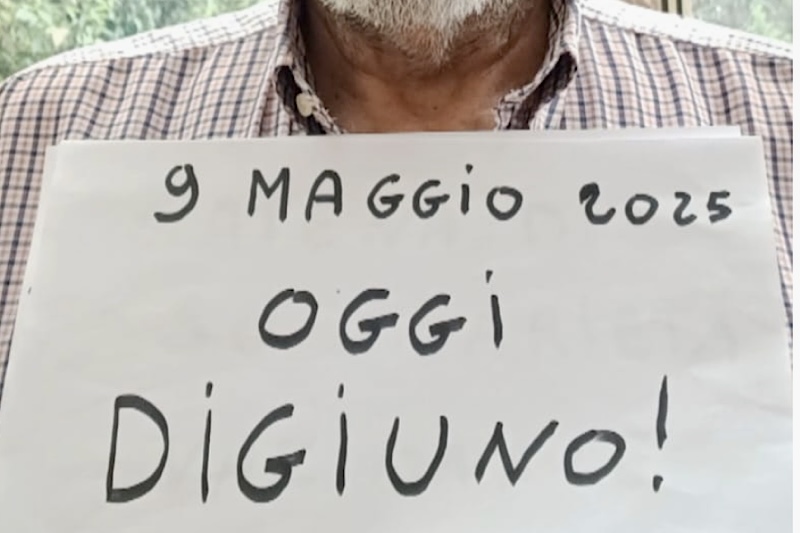 9 MAGGiO 2025
OGGi
DiGiUNO!